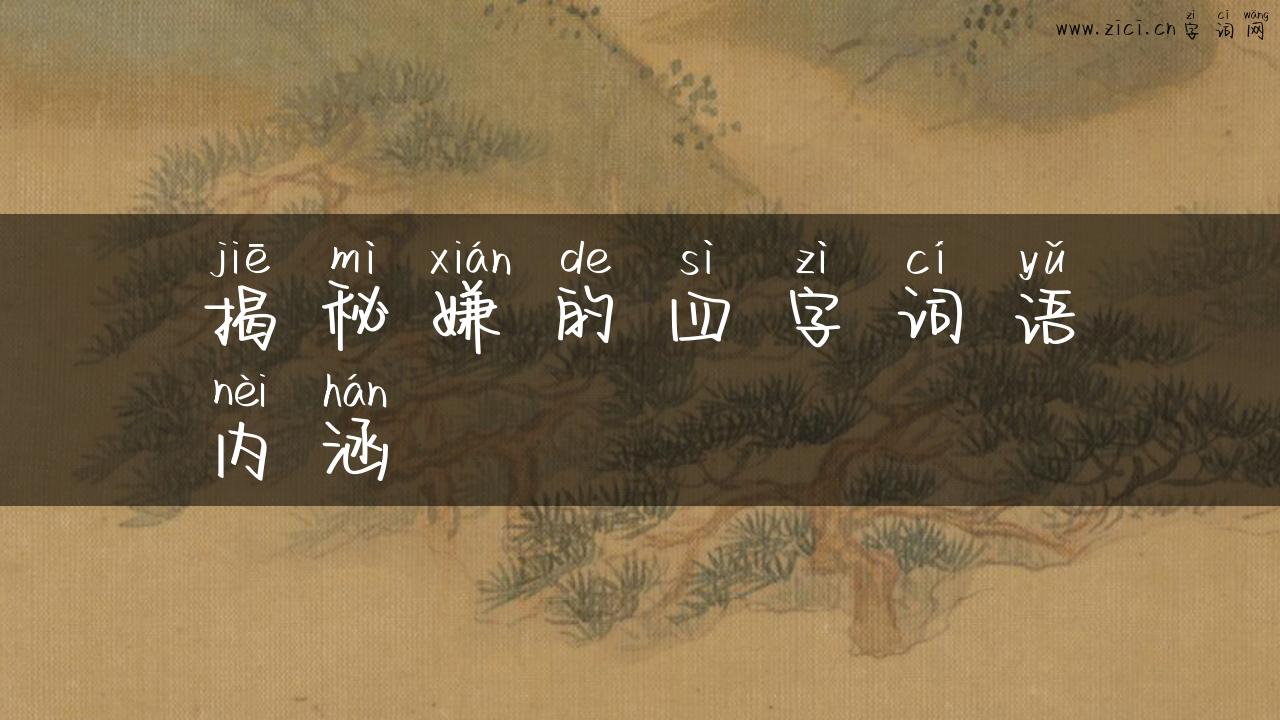 zì cí wǎng
www.zici.cn 字词网
jiē mì xián de sì zì cí yǔ
揭秘嫌的四字词语
nèi hán
内涵